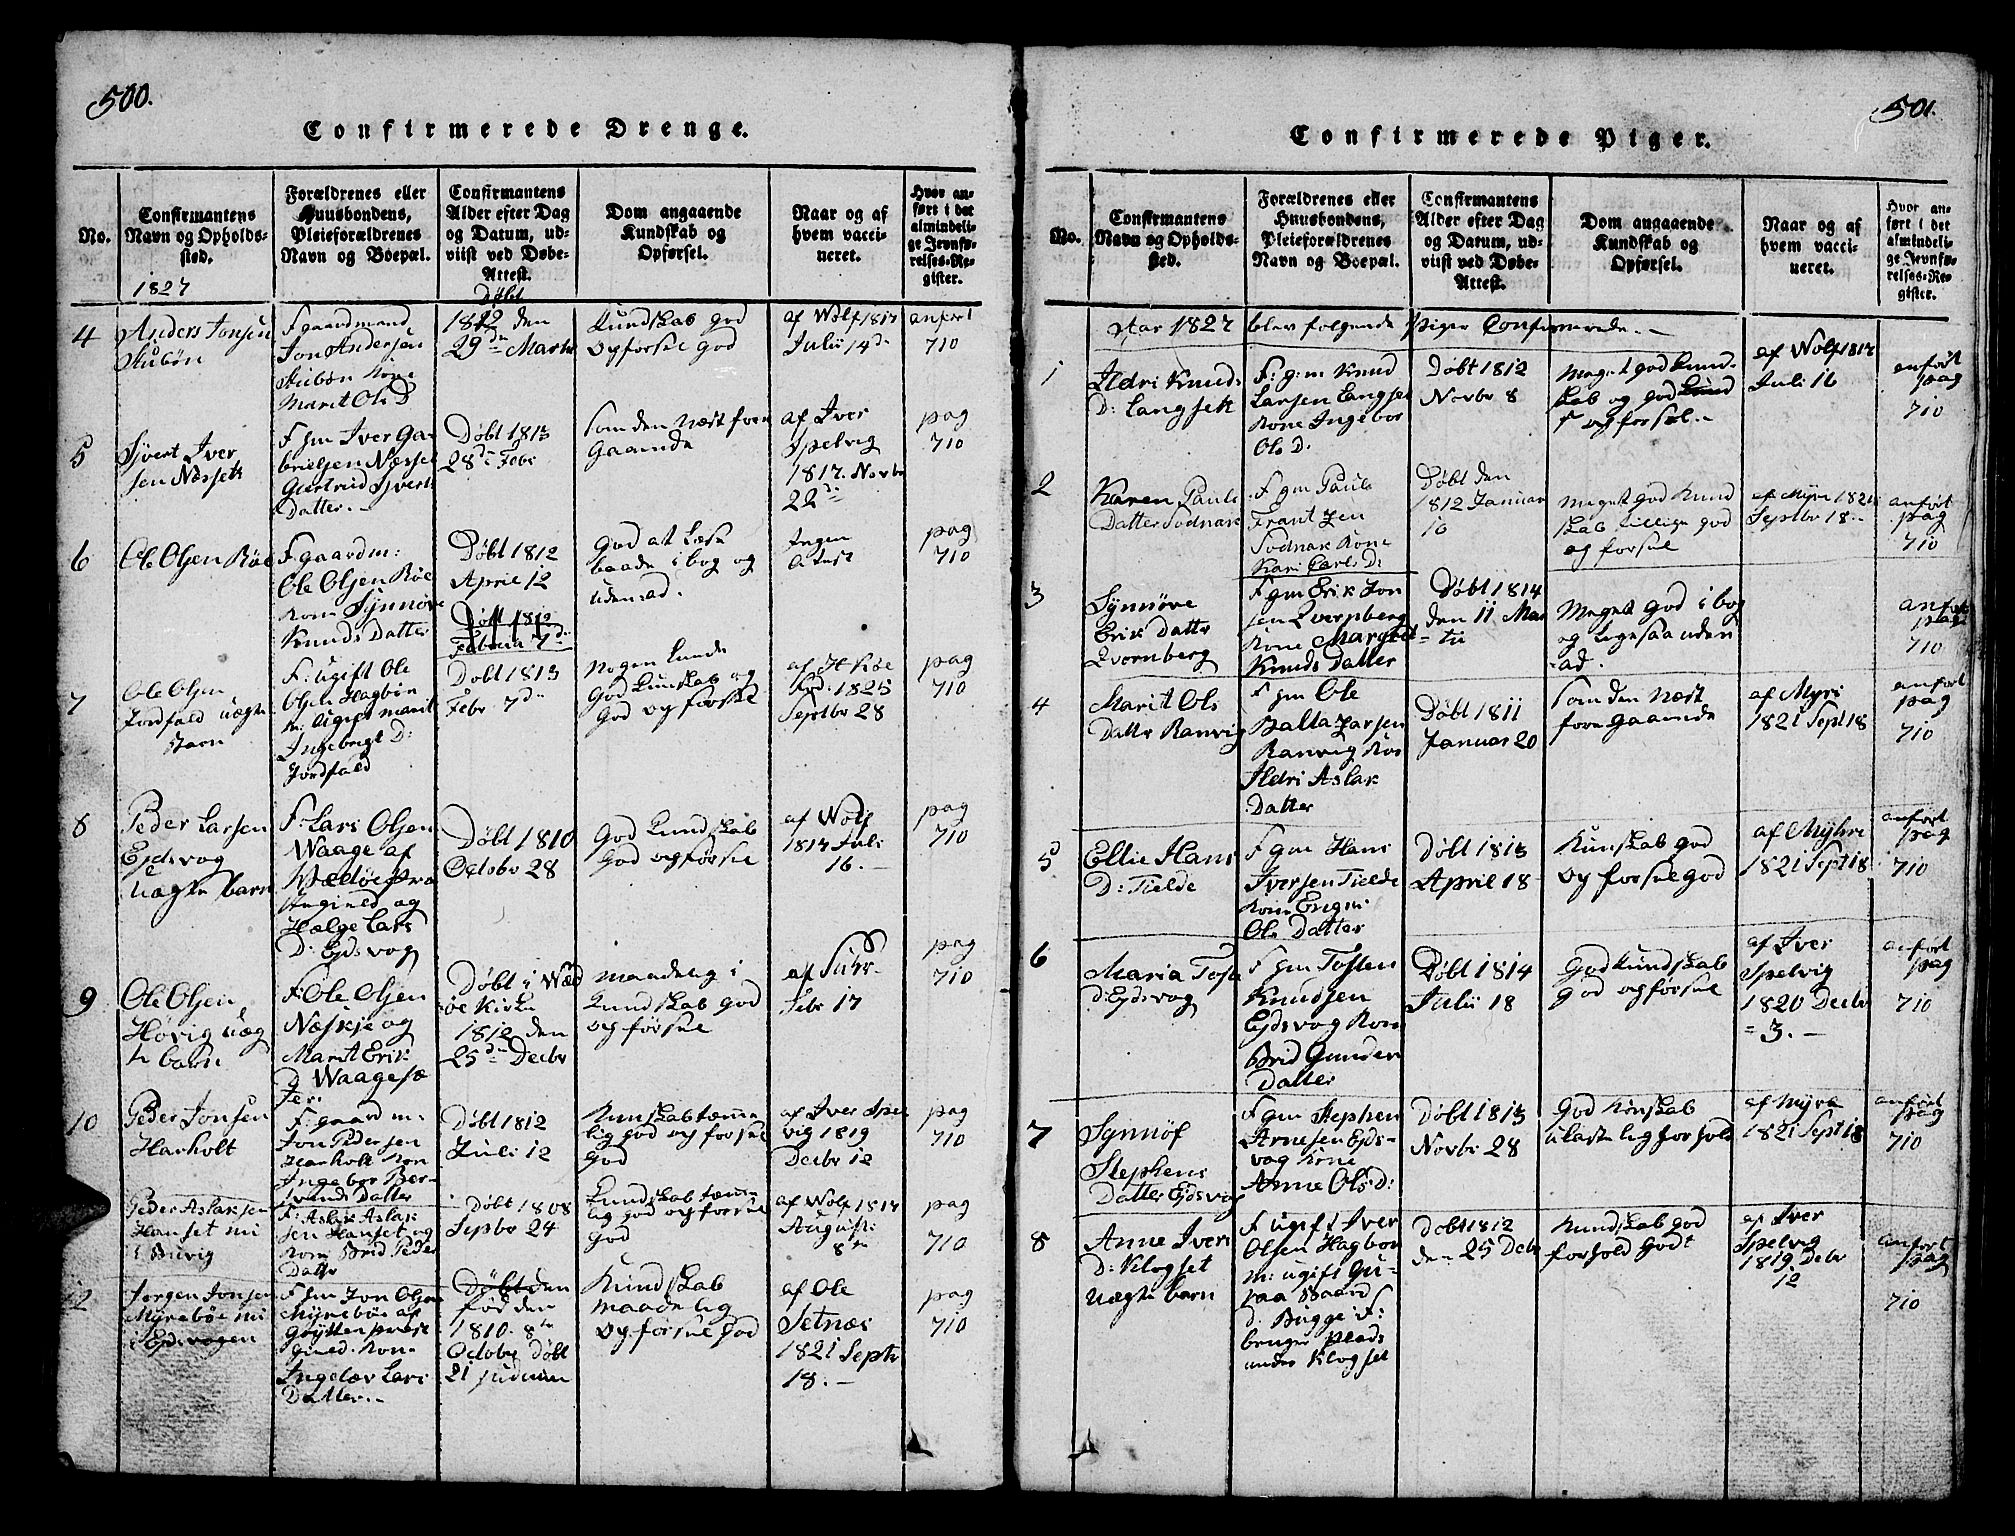 500.
Confirmerede Drenge.
No.
Confirmantens
Navn og Opholds-
sted.
1827
Forældrenes eller
Huusbondens,
Pleieforældrenes
Navn og Boepæl.
Confirmantens
Alder efter Dag
og Datum, ud-
viist ved Døbe-
Attest.
Døbt
Dom angaaende
Kundskab og
Opførsel.
Naar og af
hvem vacci-
neret.
Hvor an-
ført i det
almindeli-
ge Jevnfø-
relses-Re-
gister.
4
Anders Jonsen
Stubøn
F gaardmand
Jon Andersen
Stubøn Kone
Marit Ols D
1812 den
29de Marts
Kundskab god
opførsel god
af Wolf 1817
Julii 14de
anført
710
5
Sivert Iver
sen Næsset
F gm Iver Ga-
brielsen Næsset
Gurtrud Sivert
Datter.
Døbt 1813
28de Febr
som den Næst fore
Gaaende
af Iver
Spelvig
1817. Novbr
22de
pag
710
6
Ole Olsen Röe
F. gaardm:
Ole Olsen Röe
Kone Synnøve
Knuds Datter
Døbt 1812
April 12
God at Læse
baade i bog og
uden ad.
Ingen
Attest
pag
710
7
Ole Olsen
Jordfald uægte
Barn
F: ugift Ole
Olsen Hagbøn
M: ugift Marit
Ingebrigt D:
Jordfald
Døbt 1812
Februarii 7de
Døbt 1813
Febr 7de
Nogen Lunde
God Kunskab og
God opførsel
af H Röe
1825
Septbr 28
pag
710
8
Peder Larsen
Ejdsvog
Uægte barn
F: Lars Olsen
Waage af
Wædøe Præ
stegield og
Helge Lars
D: Ejdsvog
Døbt 1810
Octobr 28
God Kundskab
God opførsel
af Wolf
1817 Juli
16.
pag
710
9
Ole Olsen
Høvig uæg
te barn
F: Ole Olsen
Næskje og
Marit Erik
D Waagesæ
ter.
Døbt i Wæd
øe Kirke
1812 den
25de Decbr
maadelig i
Kundskab god
opførsel
af Suhr
Febr 17
pag
710
10
Peder Jonsen
Harholt
F. gaardm:
Jon Pedersen
Harholt Kon
Ingebor Ber-
svends Datter
Døbt 1812
Juli 12
Kunskab temme
lig god opførsel
God
af Iver Spel
vig 1819
Decbr 12
pag
710
Peder Aslaksen
Hanset nu
i Buvig
F: Aslak Aslak
sen Hanset og
Kone Brid Peder
Datter
Døbt 1808
Sepbr 24
Kundskab temme
lig god opførsel
God
af Wolf 1817
August
8de
pag
710
12
Jørgen Jonsen
Myrebøe nu
i Ejdsvogen
F gm Jon Olsen
Myrebøe af
Grytten præste
gield. Kon
Ingelæv Lars
Datter.
Døbt den
født den
1810. 8de
October Døbt
21
Kundskab
maadelig
opførsel God
af Ole
Setnæs
1821 Septr
18.
pag
710
501.
Confirmerede Piger.
No.
Confirmantens
Navn og Opholds-
sted.
Forældrenes eller
Huusbondens,
Pleieforældrenes
Navn og Boepæl.
Confirmantens
Alder efter Dag
og Datum, ud-
viist ved Døbe-
Attest.
Dom angaaende
Kundskab og
Opførsel.
Naar og af
hvem vacci-
neret.
Hvor an-
ført i det
almindeli-
ge Jevnfø-
relses-Re-
gister.
Aar 1827 blev følgende Piger Confirmerede.
1
Ildri Knuds
D: Langset
F: g:m Knud
Larsen Langset
Kone Ingebor
Ols D.
Døbt 1812
Novbr 8
Meget god Kund-
skab og god
opførsel.
af Wolf 1817
Juli 16
anført
pag
710
2
Karen Pauls
Datter Sodnak
F gm Paul
Frantzen
Sodnak Kone
Kari Carls D:
Døbt den
1812 Januar
16
Meget god Kund
skab tillige god
opførsel
af Myre 1821
Septbr 18.
anført
pag
710
3
Synnøve
Erik Datter
Qvernberg
F gm Erik Jon
sen Qvernberg
Kone Margret
Knuds Datter
Døbt 1814
den 11 Mar
tii
Meget God i bog
og ligesaa uden
ad.
anført
pag
710
4
Marit Ols
Datter Ranvig
F gm Ole
Baltazarsen
Ranvig Kone
Ildri Aslak
Datter
Døbt 1811
Januar 20
som den Næst
foregaaende
af Myre
1821 Sept 18
anført
pag
710
5
Ellie Hans
D: Tielde
F gm Hans
Iversen Tielde
Kone
Ols Datter
Døbt 1813
April 18
Kunskab god
opførsel god
af Myhre
1821 Sept 18
anført
pag
710
6
Maria Tosten
D: Ejdsvog
F gm Tosten
Knudsen
Ejdsvog Kone
Brid Gunder
Datter
Døbt 1814
Julii 18
God Kundskab
God opførsel
af Iver
Spelvig
1820 Decbr
3.
anført
pag
710
7
Synnøf
Stephens
Datter Ejdsvog
F gm Stephen
Arnesen Ejds-
vog Kone
Anne Ols D:
Døbt 1813
Novbr 28
God Kunskab
ulastelig forhold
af Myre
1821 Sept 18
anført
pag
710
8
Anne Ivers
D: Klogset
Uægte barn
F ugift Iver
Olsen Hagbøn
M: ugift Gu-
Baard
D. Bugge F:
bruger Plads
under Klogset
Døbt 1812
den 25 Decbr
Kundskab god
forhold Godt
af Iver
Spelvig
1819 Decbr
12
anført
pag
710